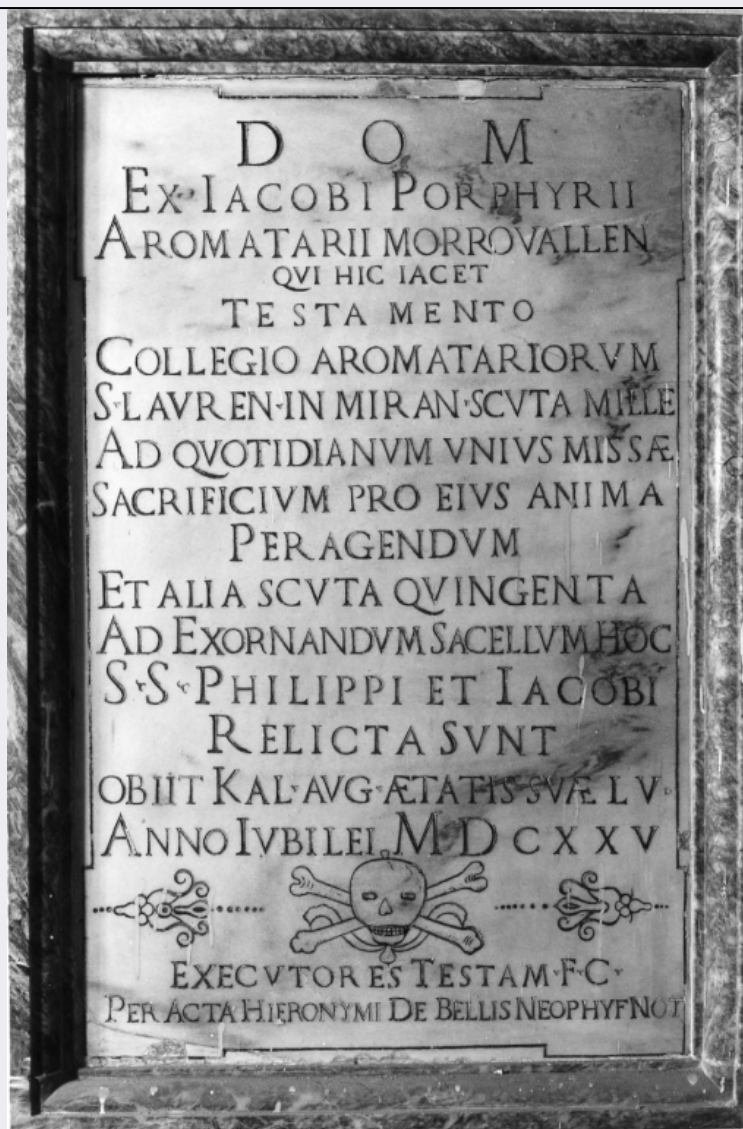 D O M
EX·IACOBI PORPHYRII
AROMATARII MORROVALLEN
QVI HIC IACET
TESTAMENTO
COLLEGIO AROMATARIORVM
S·LAVREN·IN MIRAN·SCVTA MILLE
AD QVOTIDIANVM VNIVS MISSÆ
SACRIFICIVM PRO EIVS ANIMA
PERAGENDVM
ET ALIA SCVTA QVINGENTA
AD EXORNANDVM SACELLVM HOC
S·S·PHILIPPI ET IACOBI
RELICTA SVNT
OBIIT KAL·AVG·ÆTATIS SVÆ LV·
ANNO IVBILEI MDCXXV
EXECVTORES TESTAM·F·C·
PER ACTA HIERONYMI DE BELLIS NEOPHYFNOT